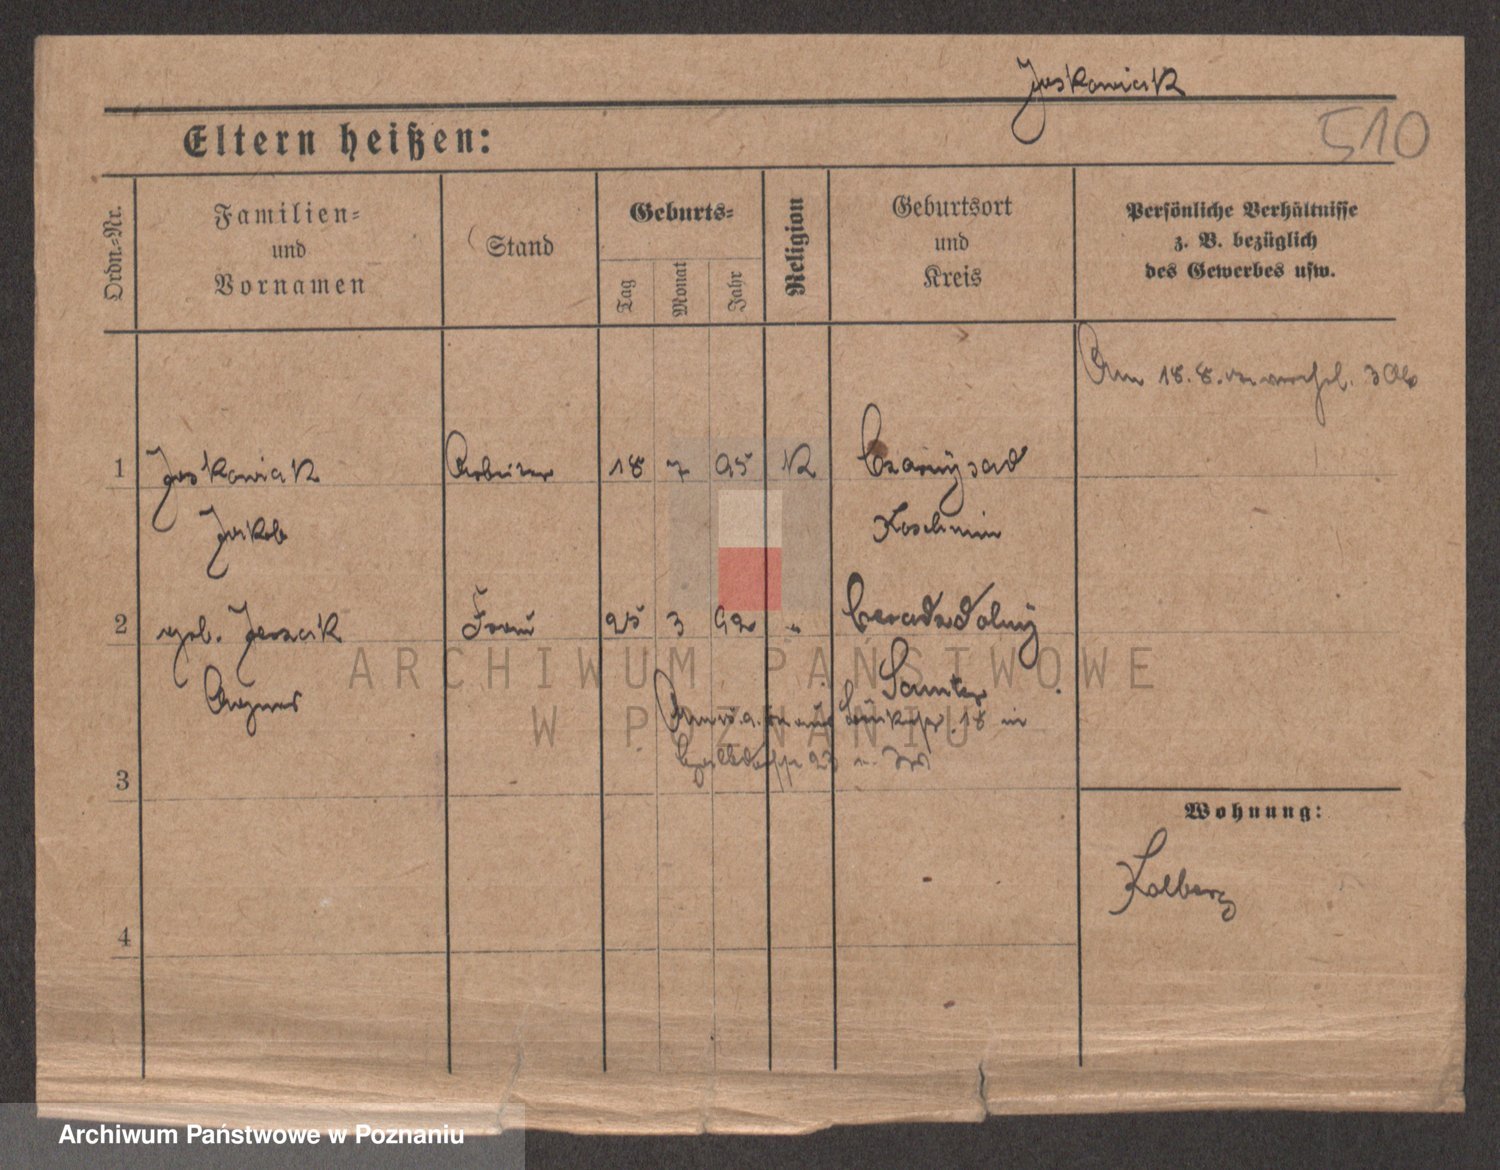 Jaskowiak
510
Eltern heißen:
Ordn.-Nr.
Familien-
und
Vornamen
Stand
Geburts-
Tag
Monat
Jahr
Religion
Geburtsort
und
Kreis
Persönliche Verhältnisse
z. B. bezüglich
des Gewerbes usw.
Am 18. 8.
1 Jaskowiak Arbeiter 18 7 95 K Czarnysad
Jakob Koschmin
2 geb. Jerzak Frau 25 3 92 "
Agnes Samter
18 in
3
Wohnung:
Kolberg
4
ARCHIWUM PAŃSTWOWE
W POZNANIU
Archiwum Państwowe w Poznaniu